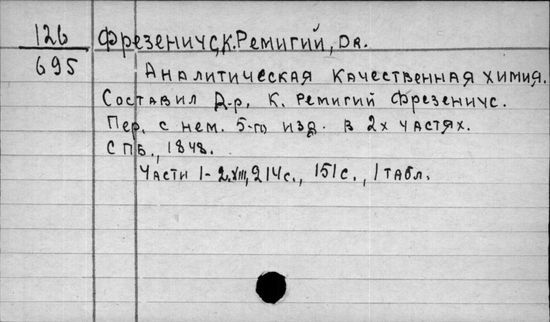 126
695
Фрезеничс, К. Ремигий, Dr.
Аналитическая качественная химия.
Составил Д-р, К. Ремигий Фрезениус.
Пер. с нем. 5-го изд. В 2х частях.
СПБ., 1848.
Части 1-2. VIII, 214с., 151с., 1 табл.